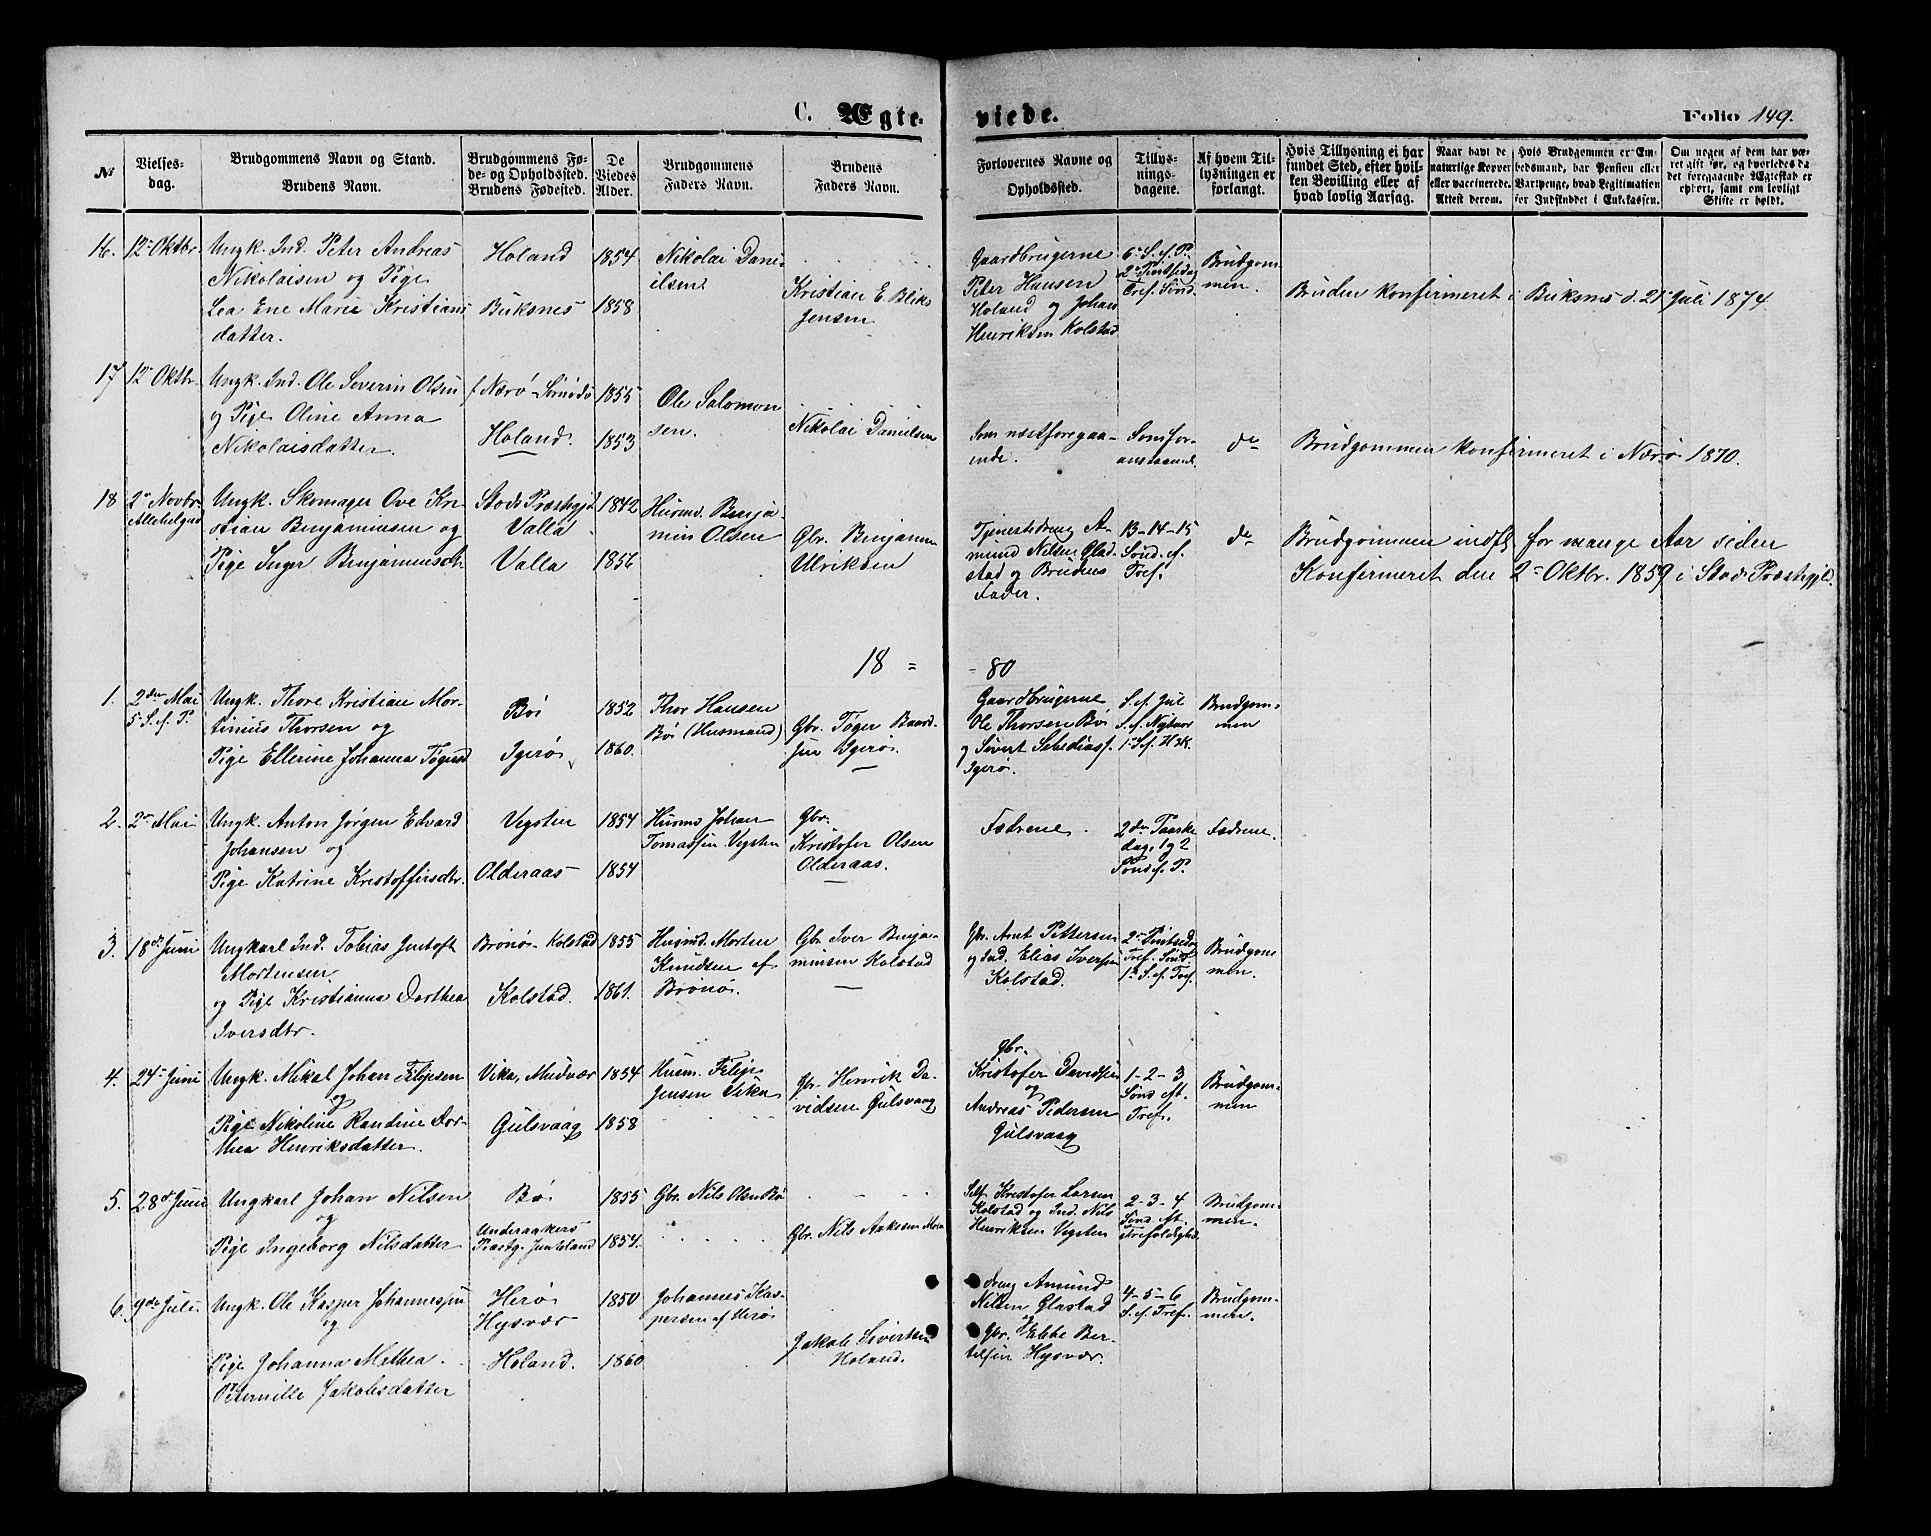 C. Ægte-
viede.
Folio 149.
№
Vielses-
dag.
Brudgommens Navn og Stand.
Brudens Navn.
Brudgommens Fø-
de- og Opholdsted.
Brudens Fødested.
De
Viedes
Alder.
Brudgommens
Faders Navn.
Brudens
Faders Navn.
Forlovernes Navne og
Opholdssted.
Tillys-
nings-
dagene.
Af hvem Til-
lysningen er
forlangt.
Hvis Tillysning ei har
fundet Sted, efter hvil-
ken Bevilling eller af
hvad lovlig Aarsag.
Naar havt de
naturlige Kopper
eller vaccinerede.
Attest derom.
Hvis Brudgommen er Em-
bedsmand, har Pension eller
Vartpenge, hvad Legitimation
for Indskuddet i Enkekassen.
Om nogen af dem har væ-
ret gift før, og hvorledes da
det foregaaende Ægteskab er
ophørt, samt om lovligt
Skifte er holdt.
16. 12 Oktbr.
Ungk. Ind. Peter Andreas
Nikolaisen og Pige
Lea Ene Marie Kristians
datter.
Holand
Buksnes
1854
1858
Nikolai Dani-
elsen
Kristian E
Jensen
Gaardbrugerne
Peter Hansen
Holand og Johan
Henriksen Kolstad
6 S. e. P.
2 Pintsedag
Tref. Sønd.
Brudgom-
men.
Bruden konfirmeret i Buksnes d. 21 Juli 1874.
17 12 Oktbr.
Ungk. Ind. Ole Severin Olsen
og Pige Oline Anna
Nikolaisdatter.
f. Nærø
Holand.
1855
1853
Ole Salomon
sen.
Nikolai Danielsen
Som næstforegaa-
ende.
Som for-
anstaaende
do
Brudgommen konfirmeret i Nærø 1870.
18 2 Novbr.
Allehelgd
Ungk. Skomager Ove Kri-
stian Benjaminsen og
Pige Inger Benjaminsdt.
Stods Præstegjd
Valla
Valla
1842
1856
Husmd. Benja-
min Olsen
Gbr. Benjamin
Ulriksen
Tjenestedreng A-
mund Nilsen Glad-
stad og Brudens
Fader.
13-14-15
Sønd. ef.
Tref.
do
Brudgommen indft for mange Aar siden
Konfirmeret den 2 Oktbr. 1859 i Stods Præstegjld.
18 =
- 80
1. 2den Mai
5 S. e. P.
Ungk. Thore Kristian Mor-
tinius Thorsen og
Pige Ellerine Johanna Tøgersd
Bøi
Igerø
1852
1860.
Thor Hansen
Bøi (Husmand)
Gbr. Tøger Baard-
sen Igerø.
Gaardbrugerne
Ole Thorsen Bøi
og Sivert
Igerø.
S. e. Jul
S. e. Nytaar
1 S. e. H3K.
Brudgom-
men
2. 2 Mai
Ungk. Anton Jørgen Edvard
Johansen og
Pige Katrine Kristoffersdtr.
Vegsten
Olderaas
1854
1854
Husm. Johan
Tomassen Vegsten
Gbr.
Kristofer Olsen
Olderaas.
Fædrene.
2den Paaske
dag, 1 og 2
Sønd e. P.
Fædrene.
3. 18de Juni
Ungkarl Ind. Tobias Jentoft
Mortensen
og Pige Kristianna Dorthea
Iversdtr.
Brønø Kolstad
Kolstad.
1855
1861.
Husmd. Morten
Knudsen af
Brønø.
Gbr Iver Benja-
minsen Kolstad
Gbr. Arnt Pettersen
og Ind. Elias Iversen
Kolstad.
2 Pintsedag
Tref. Sønd.
1 S. ef. Tref.
Brudgom-
men.
4. 24 Juni
Ungk. Mikal Johan Filipsen
og
Pige Nikoline Randine Dor-
thea Henriksdatter.
Vika, Mudvær
Gulsvaag
1854
1858
Husm. Filip
Jensen Vika
Gbr Henrik Da-
vidsen Gulsvaag
Gbr.
Kristofer Davidsen
og
Andreas Pedersen
Gulsvaag
1-2-3
Sønd eft.
Tref.
Brudgom-
men
5. 28de Juni
Ungkarl Johan Nilsen
og
Pige Ingeborg Nilsdatter
Bø
Underaakers
Præstg. Jemteland
1855
1854.
Gbr. Nils Olsen Bø
Gbr. Nils Aakesen
Self. Kristofer Larsen
Kolstad og Ind. Nils
Henriksen Vegsten
2-3-4
Sønd eft.
Trefoldighd.
Brudgom-
men.
6. 9de Juli
Ungk. Ole Kasper Johannessen
og
Pige Johanna Mathea
Peternille Jakobsdatter
Herø
Hysvær
Holand.
1850
1860
Johannes Kas-
persen af Herø
Jakob Sivertsen
Holand.
dreng Amund
Nilsen Glastad
og
Gbr. Ebbe Ber-
telsen Hysvær.
4-5-6
S. ef. Tref.
Brudgom-
men.